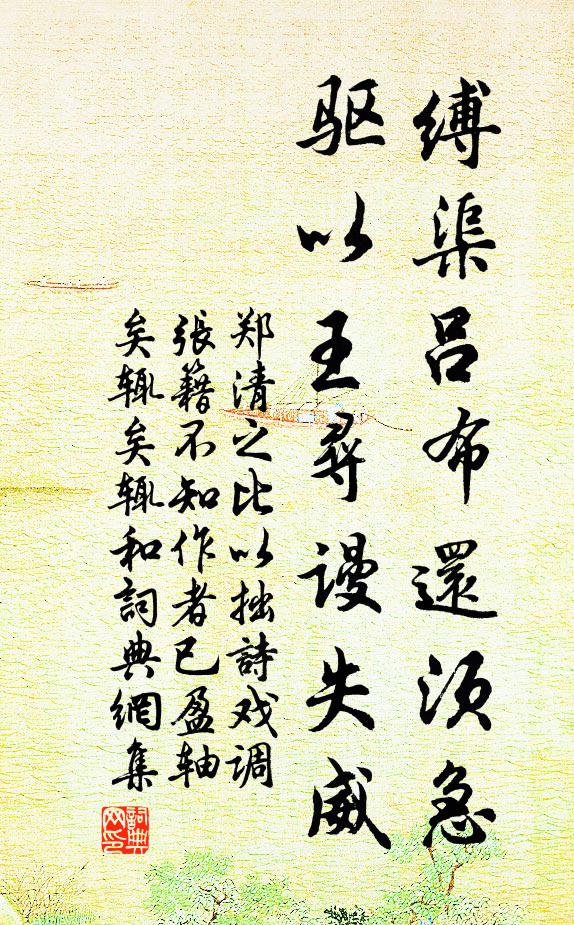 缚渠吕布還须急
驱以王尋谩失威
郑清之比以拙詩戏调
張籍不知作者已盈轴
矣辄矣辄和詞典網集
詞典
网印